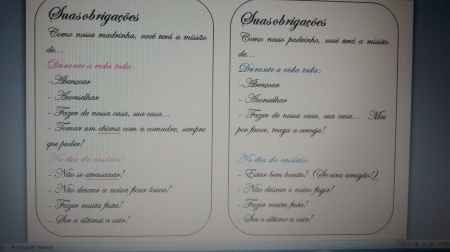 Suas obrigações
Como nossa madrinha, você terá a missão
de...
Durante a vida toda:
- Abençoar
- Aconselhar
- Fazer de nossa casa, sua casa...
- Tomar um chima com a comadre, sempre
que puder!
No dia do casório:
- Não se amassar!
- Não deixar a noiva ficar louca!
- Fazer muita festa!
- Ser a última a sair!
Suas obrigações
Como nosso padrinho, você terá a missão
de...
Durante a vida toda:
- Abençoar
- Aconselhar
- Fazer de nossa casa, sua casa... Mas
por favor, traga a cerveja!
No dia do casório:
- Estar bem bonito! (Se vira amigão!)
- Não deixar o noivo fugir!
- Fazer muita festa!
- Ser o último a sair!